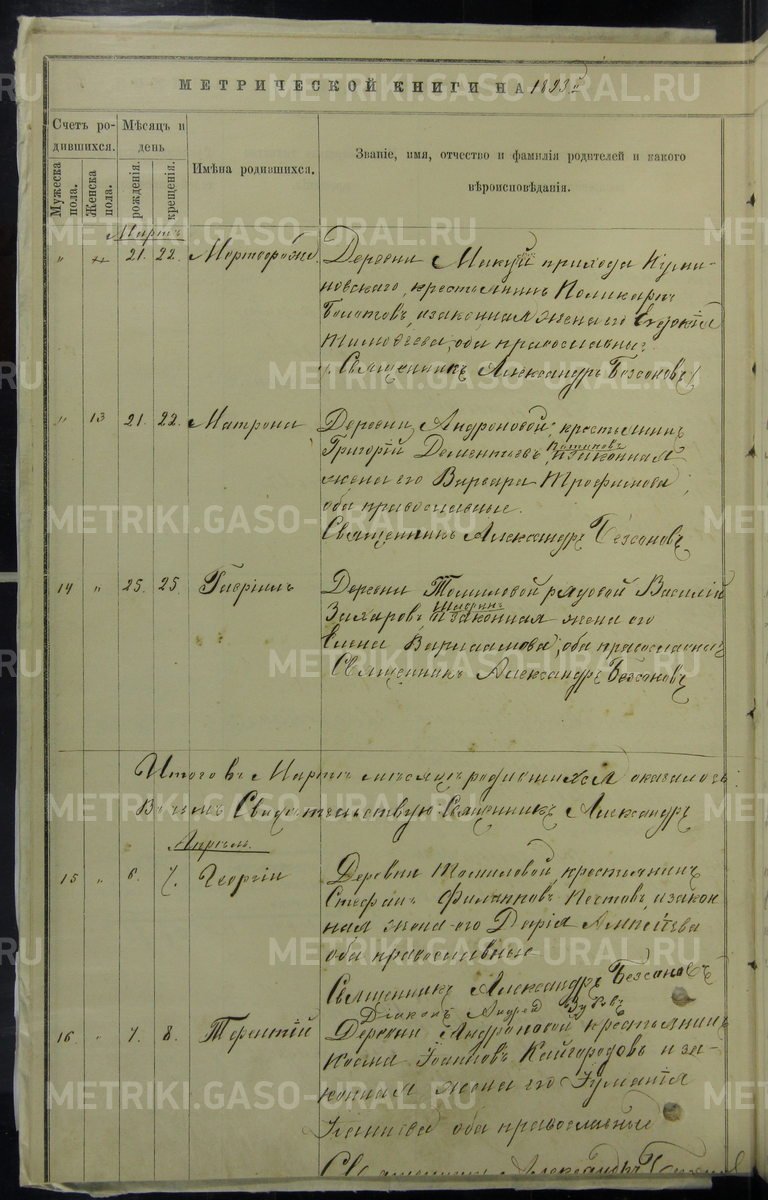 МЕТРИЧЕСКОЙ КНИГИ НА 1893
Счетъ родившихся.
Мѣсяцъ и день
Имѣна родившихся.
Званіе, имя, отчество и фамилія родителей и какого
вѣроисповѣданія.
Мужеска пола.
Женска пола.
рожденія.
крещенія.
Мартъ
21. 22. Деревни прихода
крестьянинъ Поликарпъ
законная жена его Евдокія
Тимоѳеева, оба православные
Священникъ Александръ Безсоновъ
" 13 21. 22. Матрона Деревни Андроновой, крестьянинъ
Григорій Дементьевъ и законная
жена его Варвара Трофимова,
оба православные.
Священникъ Александръ Безсоновъ
14 " 25. 25. Гавріилъ Деревни Томиловой рядовой Василій
Захаровъ и законная жена его
Елена Варлаамова, оба православные
Священникъ Александръ Безсоновъ
Итого въ Мартѣ мѣсяцѣ родившихся оказалось
Свидѣтельствую: Священникъ Александръ
Апрѣль.
15 " 6. 7. Георгій Деревни Томиловой, крестьянинъ
Стефанъ Филипповъ и законная
жена его Дарія
оба православные
Священникъ Александръ Безсоновъ
Діаконъ Андрей
16. " 7. 8. Терентій Деревни Андроновой крестьянинъ
Косма Іоанновъ Кайгородовъ и законная
жена его
оба православные
Священникъ Александръ
METRIKI.GASO-URAL.RU